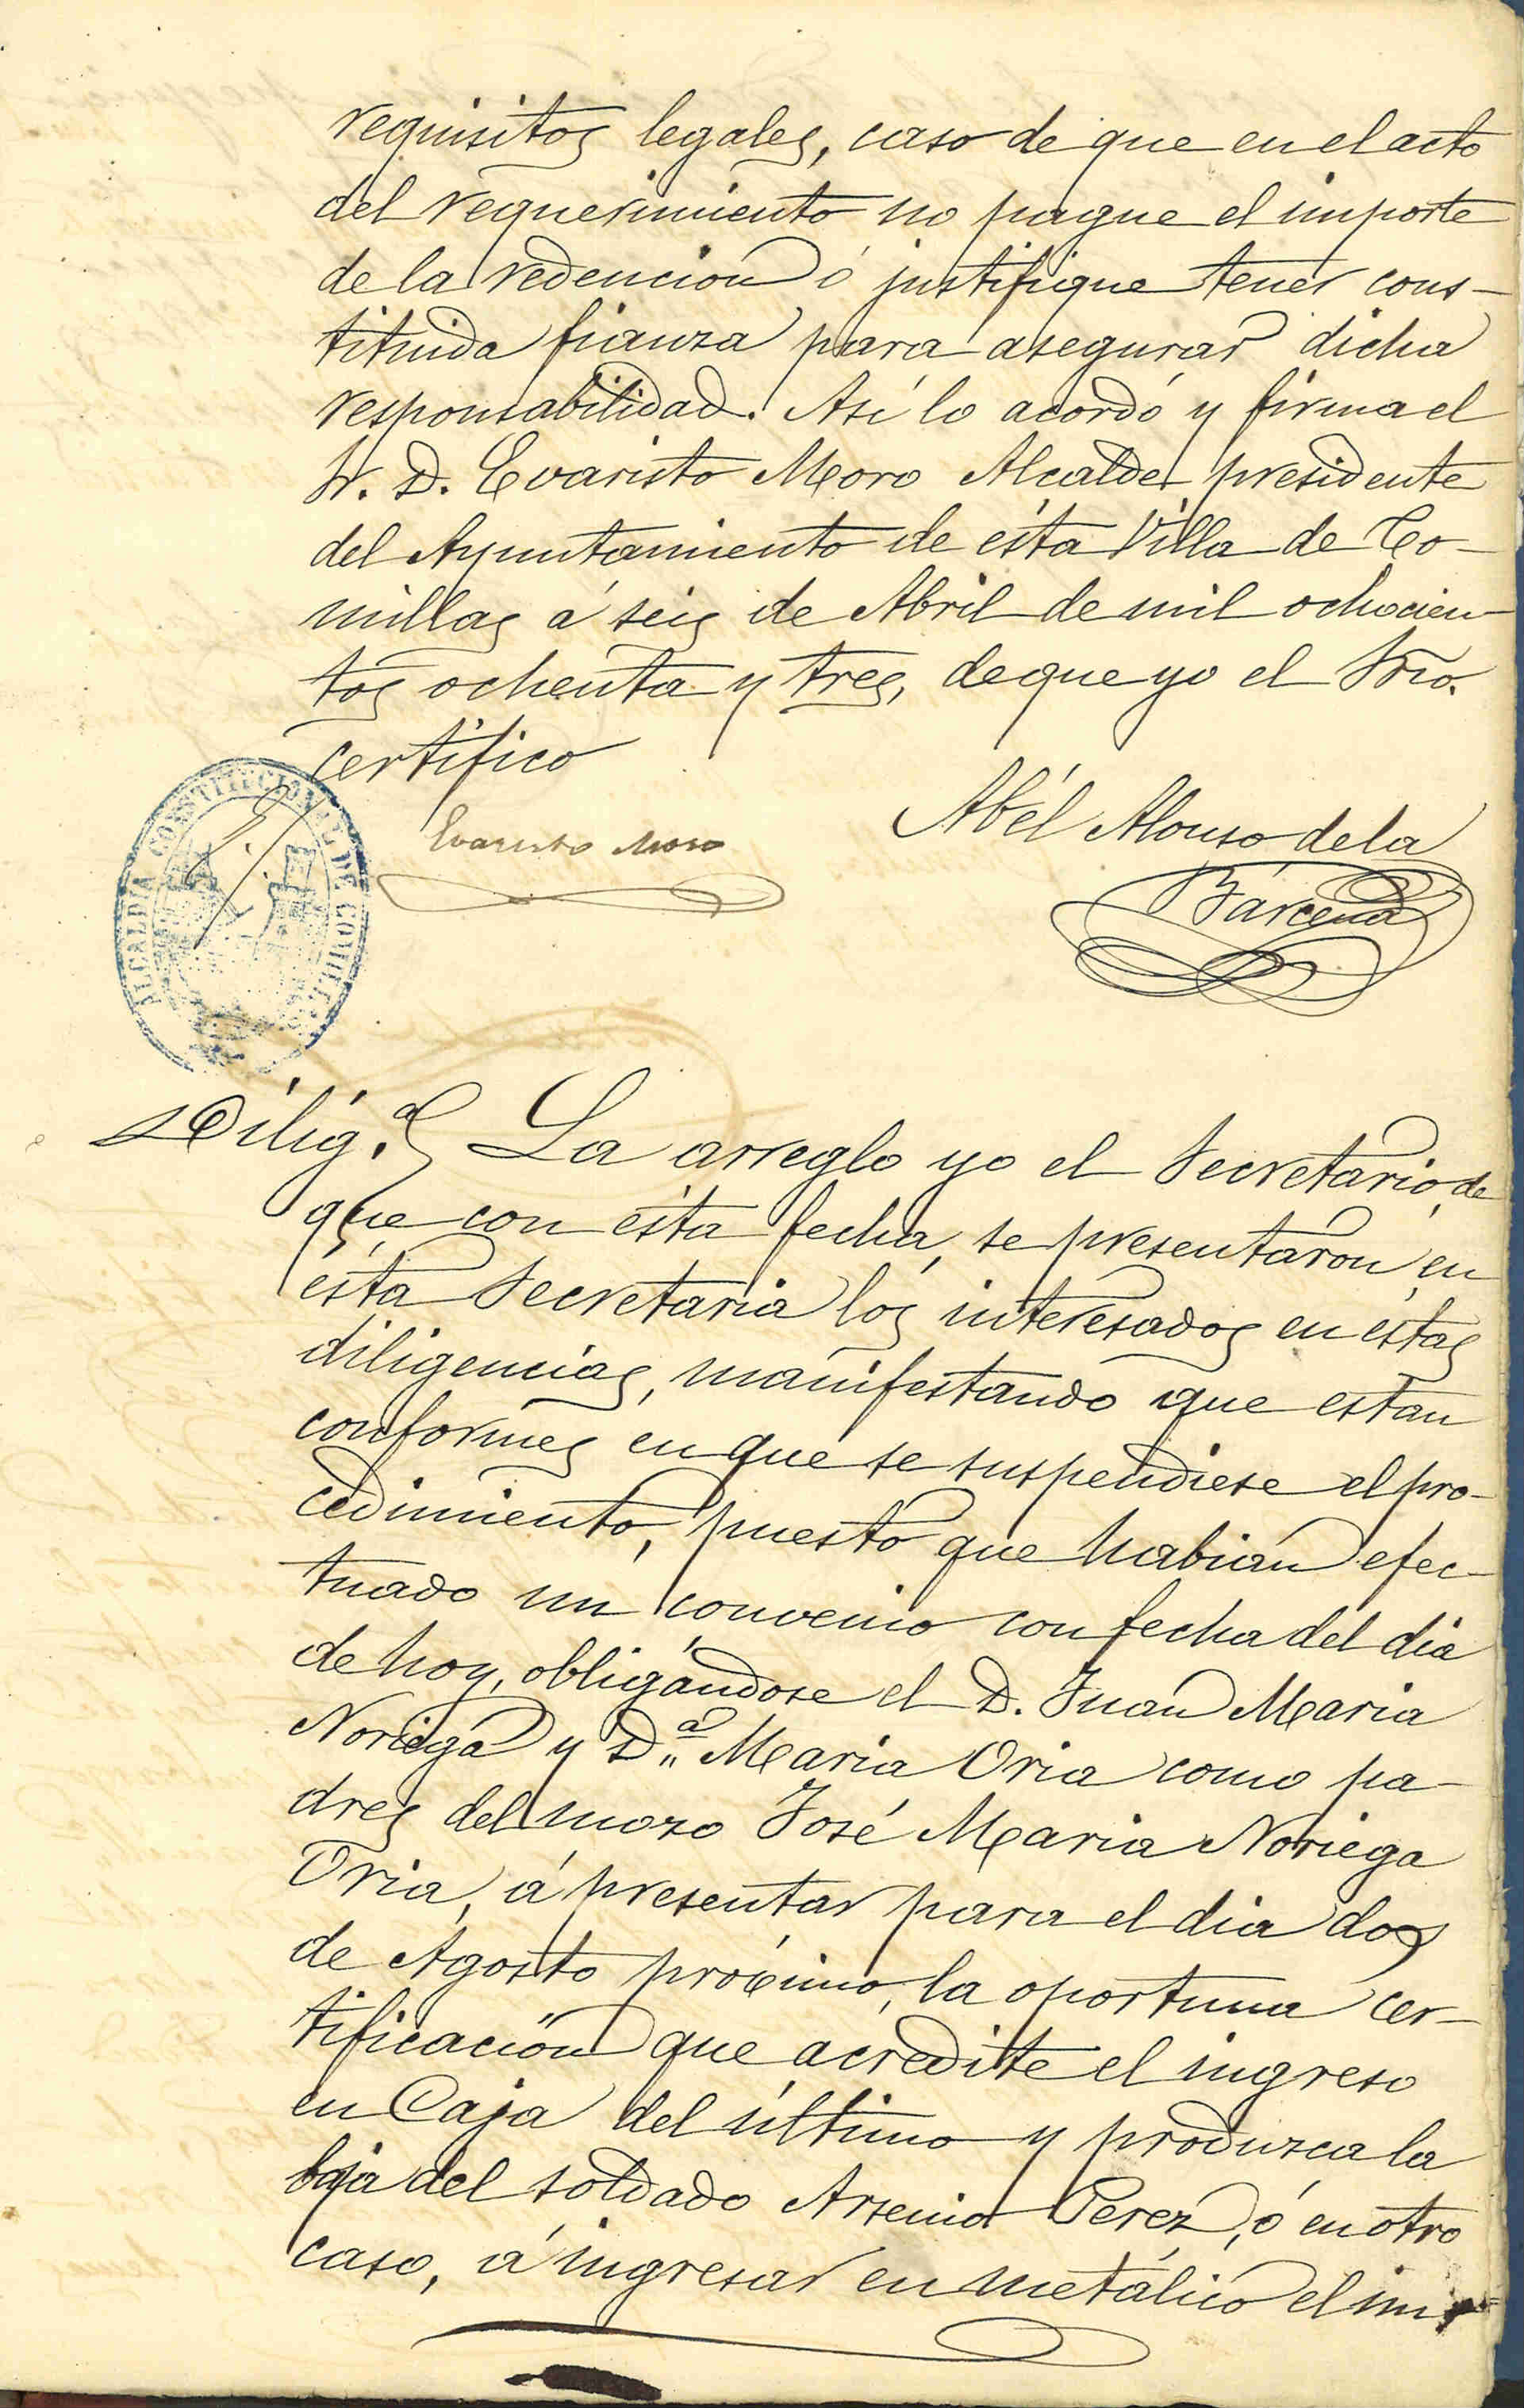 requisitos legales, caso de que en el acto
del requerimiento no pague el importe
de la redencion ó justifique tener cons-
tituida fianza para asegurar dicha
responsabilidad. Así lo acordó y firma el
Sr. D. Evaristo Moro Alcalde presidente
del Ayuntamiento de ésta Villa de Co-
millas á seis de Abril de mil ochocien-
tos ochenta y tres, de que yo el Srio.
certifico
Evaristo Moro
Abél Alonso de la
Bárcena
ALCALDIA CONSTITUCIONAL DE COMILLAS
Dilig.a La arreglo yo el Secretario, de
que con ésta fecha, se presentaron en
ésta Secretaria los interesados en éstas
diligencias, manifestando que estan
conformes en que se suspendiese el pro-
cedimiento, puesto que habian efec-
tuado un convenio con fecha del dia
de hoy, obligándose el D. Juan Maria
Noriega y D.ª Maria Oria como pa-
dres del mozo José Maria Noriega
Oria, á presentar para el dia dos
de Agosto próximo, la oportuna cer-
tificación que acredite el ingreso
en Caja del último y produzca la
baja del soldado Arsenio Perez, ó en otro
caso, á ingresar en metálico el im-